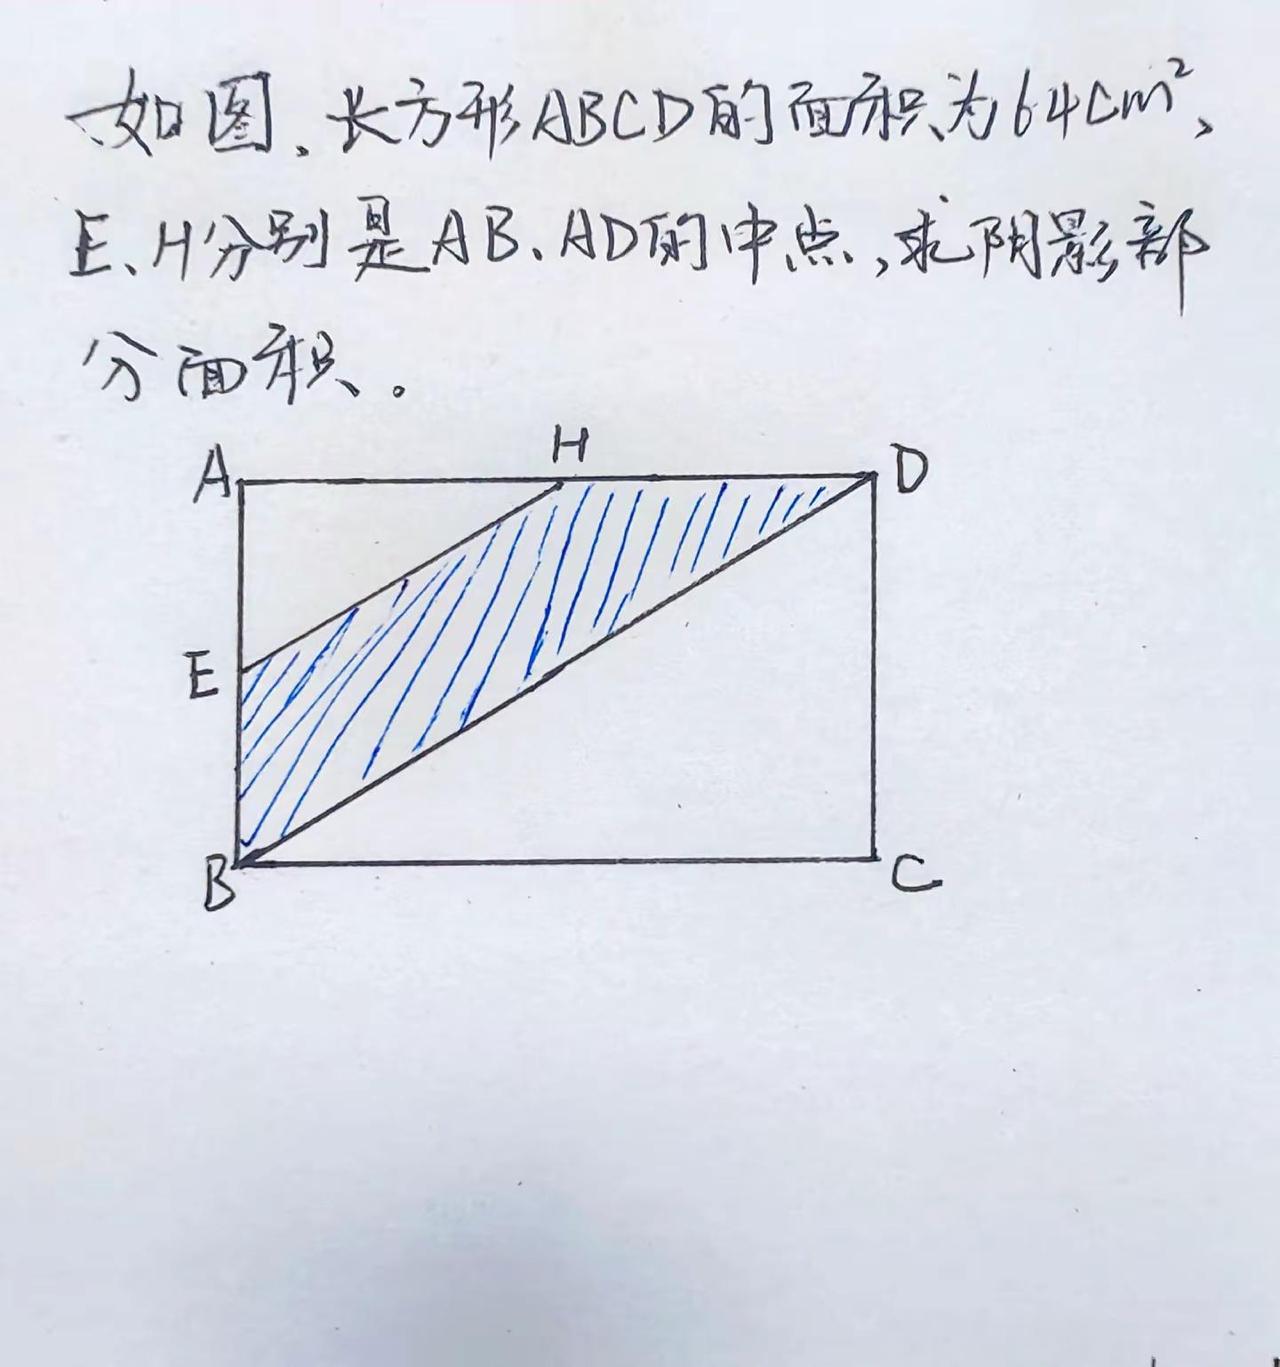 如图、长方形ABCD的面积为64cm²、
E、H分别是AB、AD的中点,求阴影部
分面积。
A H D
E
B C